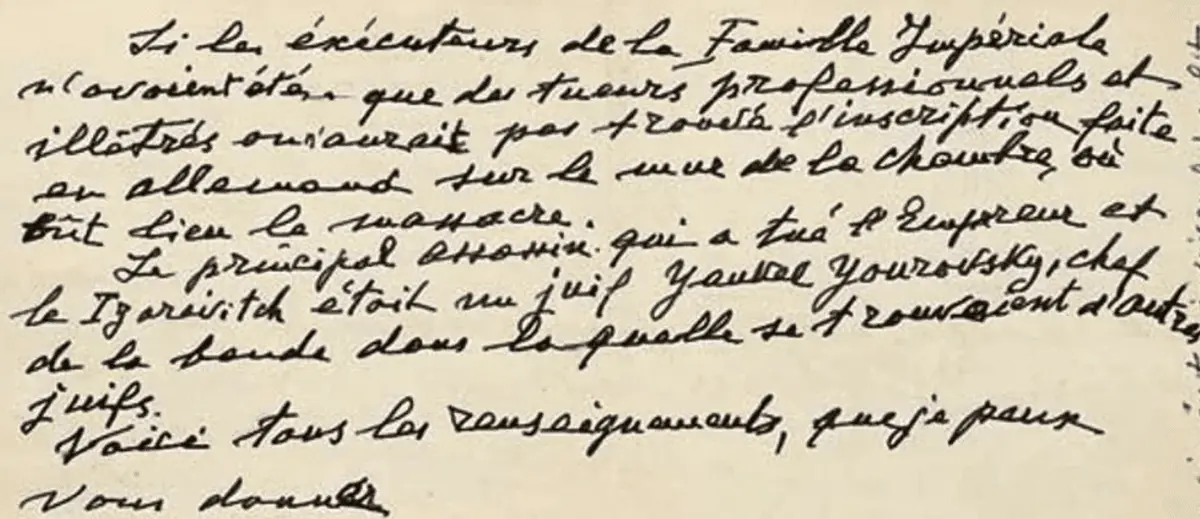 Si les éxécuteurs de la Famille Impériale
n'avaient étés que des tueurs professionnels et
illétrés on n'aurait pas trouvé l'inscription faite
en allemand sur le mur de la chambre, où
eût lieu le massacre.
Le principal assassin qui a tué l'Empreur et
le Tzarévitch était un juif Yankel Yourovsky, chef
de la bande dans laquelle se trouvaient d'autres
juifs.
Voici tous les renseignements, que je peux
vous donner